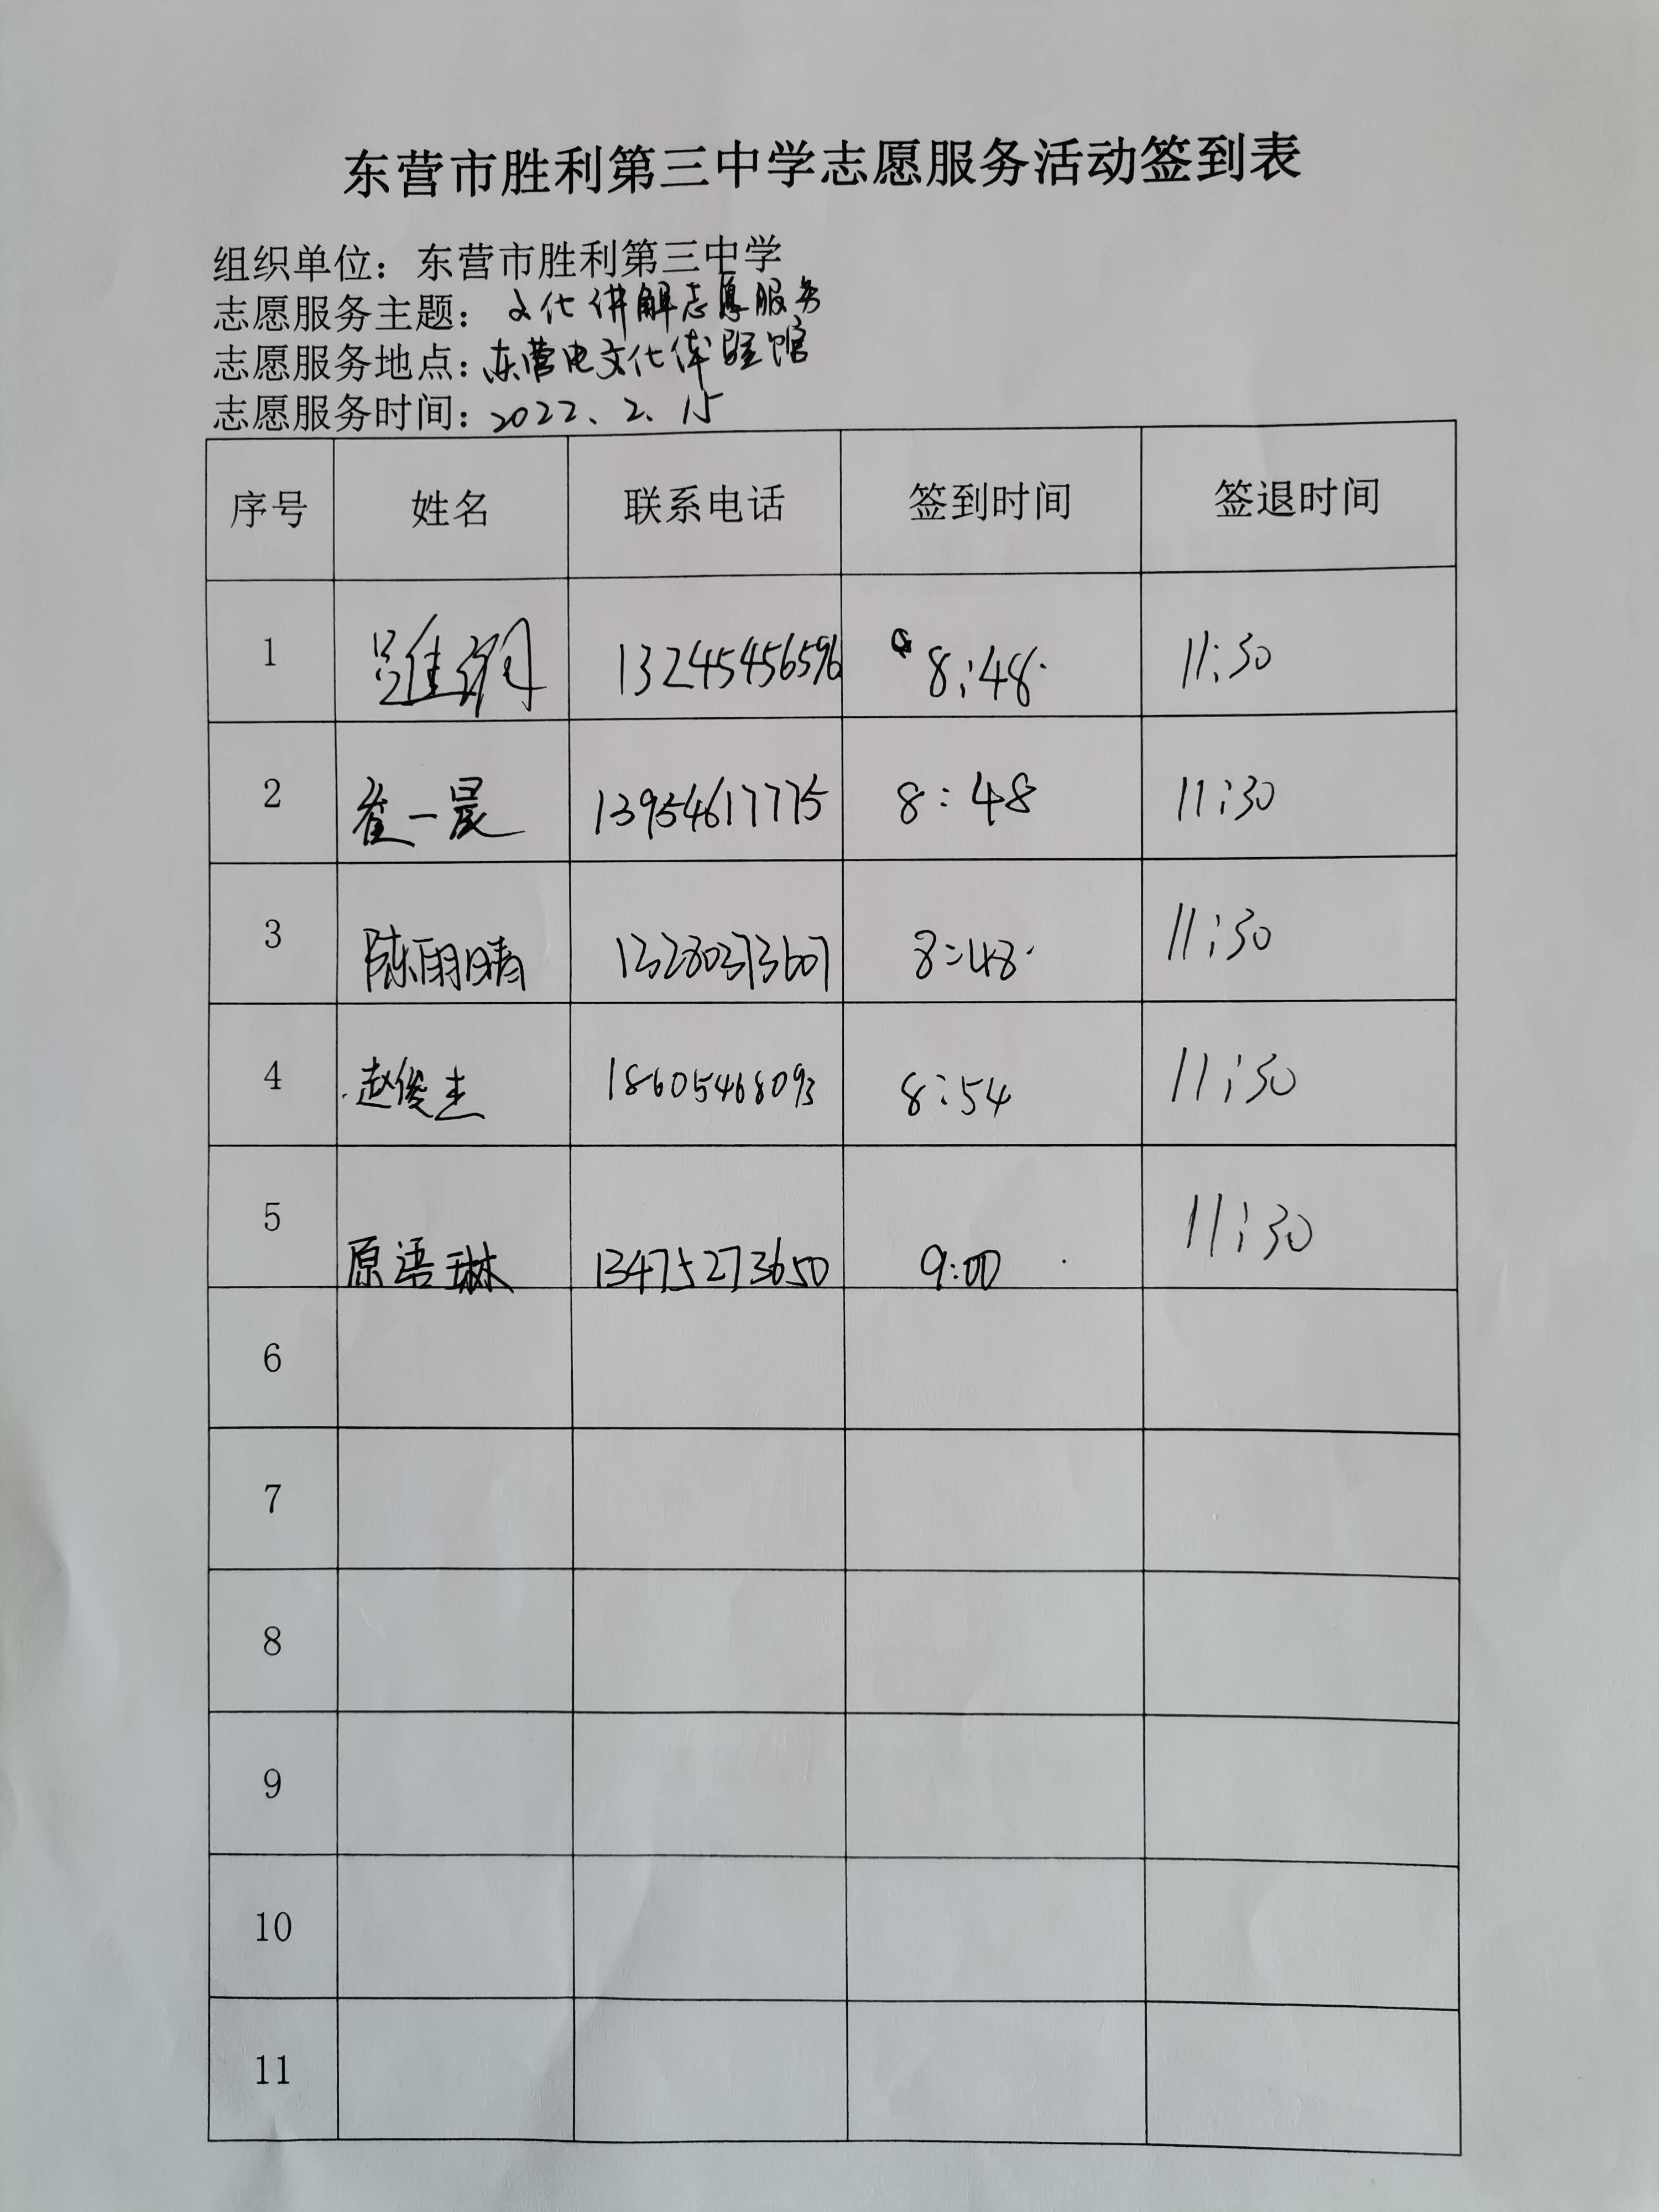 东营市胜利第三中学志愿服务活动签到表
组织单位：东营市胜利第三中学
志愿服务主题：文化讲解志愿服务
志愿服务地点：东营电文化体验馆
志愿服务时间：2022、2、15
序号 姓名 联系电话 签到时间 签退时间
1 13245456596 8:48 11:30
2 崔一晨 13954617775 8:48 11:30
3 陈雨晴 13280373607 8:48 11:30
4 赵俊杰 18605468093 8:54 11:30
5 原语琳 13475273650 9:00 11:30
6
7
8
9
10
11